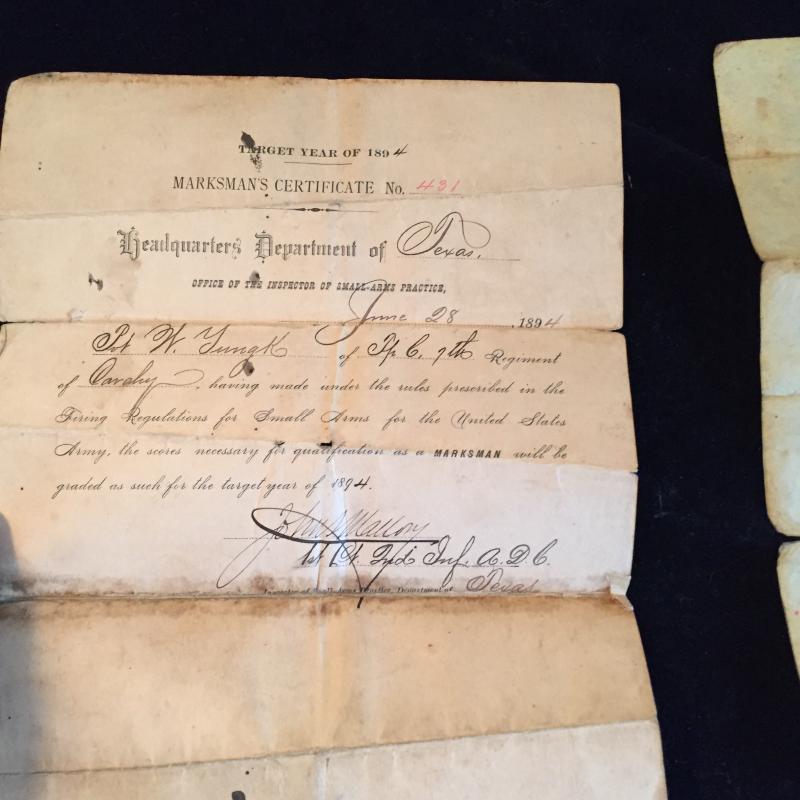 TARGET YEAR OF 1894
MARKSMAN'S CERTIFICATE No. 431
Headquarters Department of Texas.
OFFICE OF THE INSPECTOR OF SMALL-ARMS PRACTICE,
June 28, 1894
Pvt W. Jungk of Tp C, 7th Regiment
of Cavalry, having made under the rules prescribed in the
Firing Regulations for Small Arms for the United States
Army, the scores necessary for qualification as a MARKSMAN will be
graded as such for the target year of 1894.
John S Mallory
1st Lt. 2nd Inf. A.D.C.
Inspector of Small-Arms Practice, Department of Texas